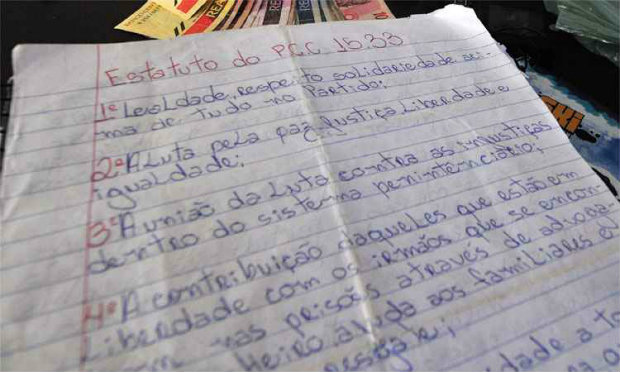 Estatuto do P.C.C 15.33
1º Lealdade, respeito solidariedade aci-
ma de tudo no Partido;
2º A Luta pela paz Justiça Liberdade e
igualdade;
3º A união da Luta contra as injustiças
dentro do sistema penintenciário;
4º A contribuição daqueles que estão em
Liberdade com os irmãos que se encon-
nas prisões através de advoga-
ajuda aos familiares e